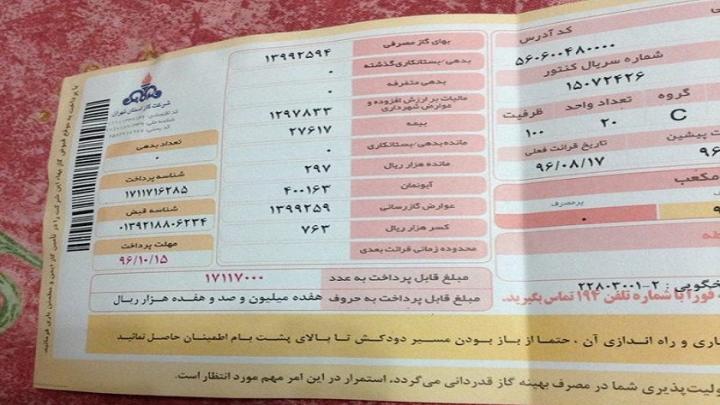 کد آدرس
۵۶۰۶۰۰۴۸۰۰۰۰
شماره سریال کنتور
۱۵۰۷۲۴۲۶
گروه
تعداد واحد
ظرفیت
C
۲۰
۱۰۰
پیشین
تاریخ قرائت فعلی
۹۶/۰۸/۱۷
مکعب
پرمصرف
۰
بهای گاز مصرفی
۱۳۹۹۲۵۹۴
بدهی/بستانکاری گذشته
۰
بدهی متفرقه
۰
مالیات بر ارزش افزوده و عوارض شهرداری
۱۲۹۷۸۳۳
بیمه
۲۷۶۱۷
مانده بدهی/بستانکاری
۰
مانده هزار ریال
۲۹۷
آبونمان
۴۰۰۱۶۳
عوارض گازرسانی
۱۳۹۹۲۵۹
کسر هزار ریال
۷۶۳
محدوده زمانی قرائت بعدی
شرکت گاز استان تهران
تعداد بدهی
۰
شناسه پرداخت
۱۷۱۱۷۱۶۲۸۵
شناسه قبض
۰۱۳۹۲۱۸۸۰۶۲۳۴
مهلت پرداخت
۹۶/۱۰/۱۵
مبلغ قابل پرداخت به عدد
۱۷۱۱۷۰۰۰
مبلغ قابل پرداخت به حروف
هفده میلیون و صد و هفده هزار ریال
۲۲۸۰۳۰۰۱-۲
فورا با شماره تلفن ۱۹۴ تماس بگیرید.
و راه اندازی آن ، حتما از باز بودن مسیر دودکش تا بالای پشت بام اطمینان حاصل نمائید
پذیری شما در مصرف بهینه گاز قدردانی می‌گردد، استمرار در این امر مهم مورد انتظار است.